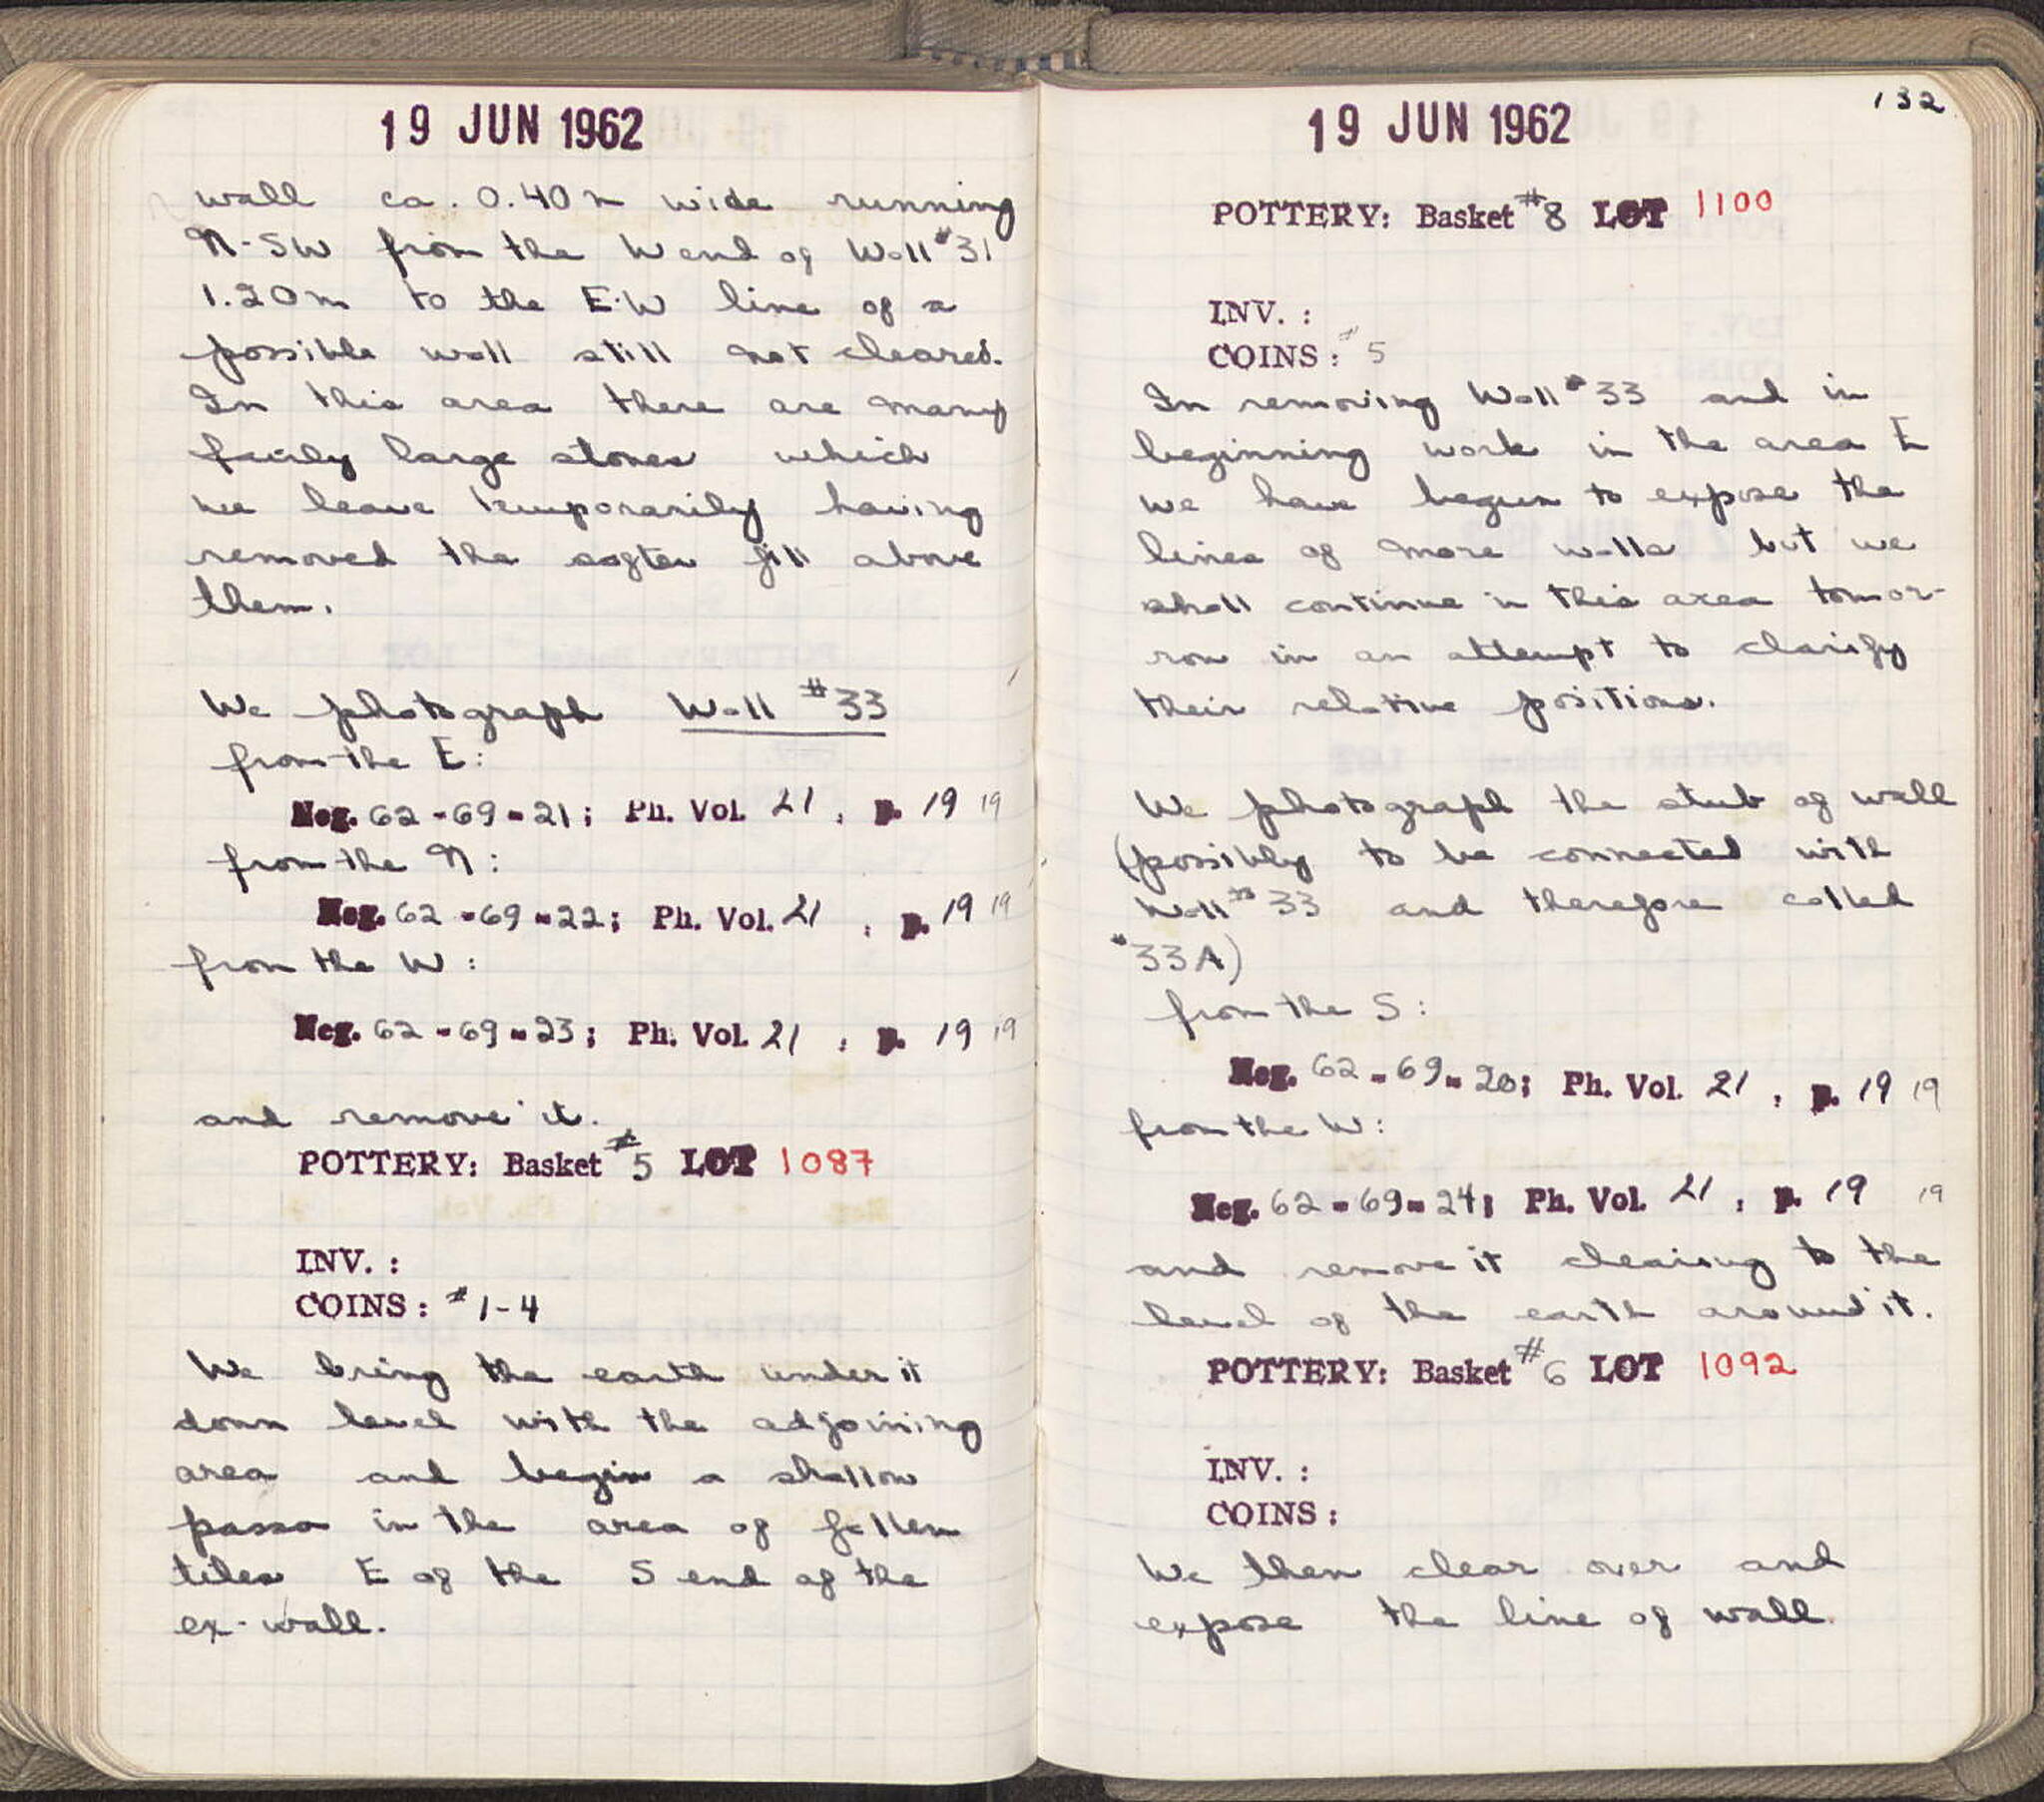 19 JUN 1962
wall ca. 0.40 m wide running
N-SW from the W end of Wall #31
1.20 m to the E-W line of a
possible wall still not cleared.
In this area there are many
fairly large stones which
we leave temporarily having
removed the softer fill above
them.
We photograph Wall #33
from the E:
Neg. 62-69-21; Ph. Vol. 21, p. 19 19
from the N:
Neg. 62-69-22; Ph. Vol. 21, p. 19 19
from the W:
Neg. 62-69-23; Ph. Vol. 21, p. 19 19
and remove it.
POTTERY: Basket #5 LOT 1087
INV. :
COINS: #1-4
We bring the earth under it
down level with the adjoining
area and begin a shallow
passo in the area of fallen
tiles E of the S end of the
ex-wall.
19 JUN 1962
132
POTTERY: Basket #8 LOT 1100
INV. :
COINS: #5
In removing Wall #33 and in
beginning work in the area E
we have begun to expose the
lines of more walls but we
shall continue in this area tomor-
row in an attempt to clarify
their relative positions.
We photograph the stub of wall
(possibly to be connected with
Wall #33 and therefore called
#33A)
from the S:
Neg. 62-69-20; Ph. Vol. 21, p. 19 19
from the W:
Neg. 62-69-24; Ph. Vol. 21, p. 19 19
and remove it clearing to the
level of the earth around it.
POTTERY: Basket #6 LOT 1092
INV. :
COINS:
We then clear over and
expose the line of wall.